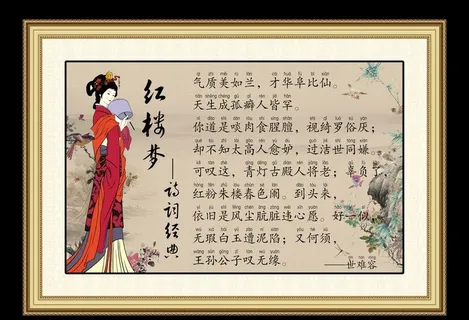 红楼梦
——诗词经典
气质美如兰，才华阜比仙。
天生成孤癖人皆罕。
你道是啖肉食腥膻，视绮罗俗厌；
却不知太高人愈妒，过洁世同嫌。
可叹这，青灯古殿人将老；辜负了，
红粉朱楼春色阑。到头来，
依旧是风尘肮脏违心愿。好一似，
无瑕白玉遭泥陷；又何须，
王孙公子叹无缘。
——世难容